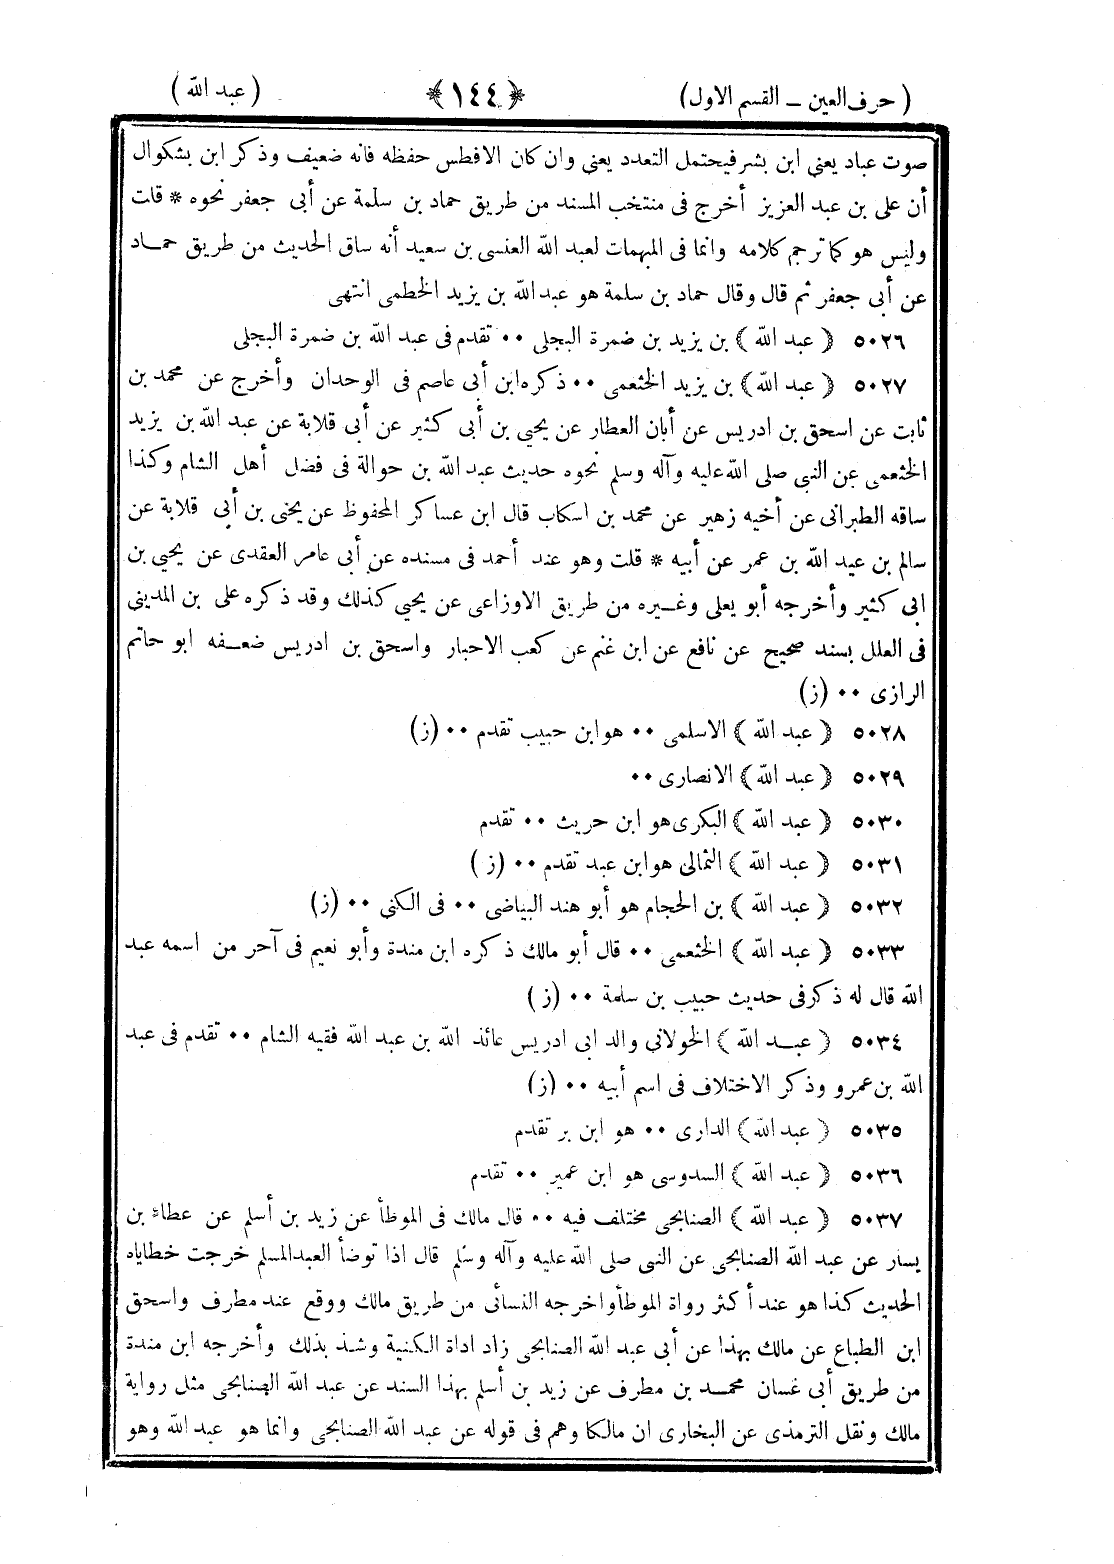 ( حرف العين – القسم الاول)
﴿١٤٤﴾
( عبد الله )
صوت عباد يعني ابن بشر فيحتمل التعدد يعنى وان كان الافطس حفظه فانه ضعيف وذكر ابن بشكوال
أن على بن عبد العزيز أخرج فى منتخب المسند من طريق حماد بن سلمة عن أبى جعفر نحوه * قلت
وليس هو كما ترجم كلامه وانما فى المبهمات لعبد الله العنسى بن سعيد أنه ساق الحديث من طريق حماد
عن أبى جعفر ثم قال وقال حماد بن سلمة هو عبد الله بن يزيد الخطمى انتهى
٥٠٢٦ ﴿ عبد الله ﴾ بن يزيد بن ضمرة البجلى ٠٠ تقدم فى عبد الله بن ضمرة البجلى
٥٠٢٧ ﴿ عبد الله﴾ بن يزيد الخثعمى ٠٠ ذكره ابن أبى عاصم فى الوحدان وأخرج عن محمد بن
ثابت عن اسحق بن ادريس عن أبان العطار عن يحيي بن أبى كثير عن أبى قلابة عن عبد الله بن يزيد
الخثعمى عن النبى صلى الله عليه وآله وسلم نحوه حديث عبد الله بن حوالة فى فضل أهل الشام وكذا
ساقه الطبرانى عن أخيه زهير عن محمد بن اسكاب قال ابن عساكر المحفوظ عن يحيى بن أبى قلابة عن
سالم بن عبد الله بن عمر عن أبيه * قلت وهو عند أحمد فى مسنده عن أبى عامر العقدى عن يحيي بن
ابى كثير وأخرجه أبو يعلى وغيره من طريق الاوزاعى عن يحيي كذلك وقد ذكره على بن المدينى
فى العلل بسند صحيح عن نافع عن ابن غنم عن كعب الاحبار واسحق بن ادريس ضعفه ابو حاتم
الرازى ٠٠ (ز)
٥٠٢٨ ﴿ عبد الله ﴾ الاسلمى ٠٠ هو ابن حبيب تقدم ٠٠ (ز)
٥٠٢٩ ﴿ عبد الله ﴾ الانصارى ٠٠
٥٠٣٠ ﴿ عبد الله ﴾ البكرى هو ابن حريث ٠٠ تقدم
٥٠٣١ ﴿ عبد الله ﴾ الثمالى هو ابن عبد تقدم ٠٠ (ز )
٥٠٣٢ ﴿ عبد الله ﴾ بن الحجام هو أبو هند البياضى ٠٠ فى الكنى ٠٠ (ز)
٥٠٣٣ ﴿ عبد الله ﴾ الخثعمى ٠٠ قال أبو مالك ذكره ابن مندة وأبو نعيم فى آخر من اسمه عبد
الله قال له ذكر فى حديث حبيب بن سلمة ٠٠ (ز )
٥٠٣٤ ﴿ عبد الله ﴾ الخولانى والد ابى ادريس عائذ الله بن عبد الله فقيه الشام ٠٠ تقدم فى عبد
الله بن عمرو وذكر الاختلاف فى اسم أبيه ٠٠ (ز)
٥٠٣٥ ﴿ عبد الله﴾ الدارى ٠٠ هو ابن بر تقدم
٥٠٣٦ ﴿ عبد الله ﴾ السدوسى هو ابن عمير ٠٠ تقدم
٥٠٣٧ ﴿ عبد الله ﴾ الصنابحى مختلف فيه ٠٠ قال مالك فى الموطأ عن زيد بن أسلم عن عطاء بن
يسار عن عبد الله الصنابحى عن النبى صلى الله عليه وآله وسلم قال اذا توضأ العبد المسلم خرجت خطاياه
الحديث كذا هو عند أكثر رواة الموطأ واخرجه النسائى من طريق مالك ووقع عند مطرف واسحق
ابن الطباع عن مالك بهذا عن أبى عبد الله الصنابحى زاد اداة الكنية وشذ بذلك وأخرجه ابن مندة
من طريق أبى غسان محمد بن مطرف عن زيد بن أسلم بهذا السند عن عبد الله الصنابحى مثل رواية
مالك ونقل الترمذى عن البخارى ان مالكا وهم فى قوله عن عبد الله الصنابحى وانما هو عبد الله وهو